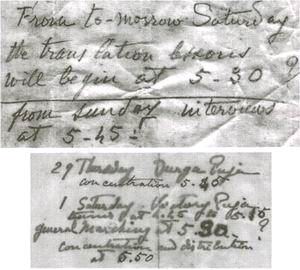 From to-morrow Saturday
the translation lessons
will begin at 5-30 ?
from sunday interviews
at 5-45 -
29 Thursday Durga Puja
concentration 5.45
1 Saturday - Victory Puja
at 4.45 to 5.15
general Marching at 5.30. ?
concentration and distribution
at 5.50